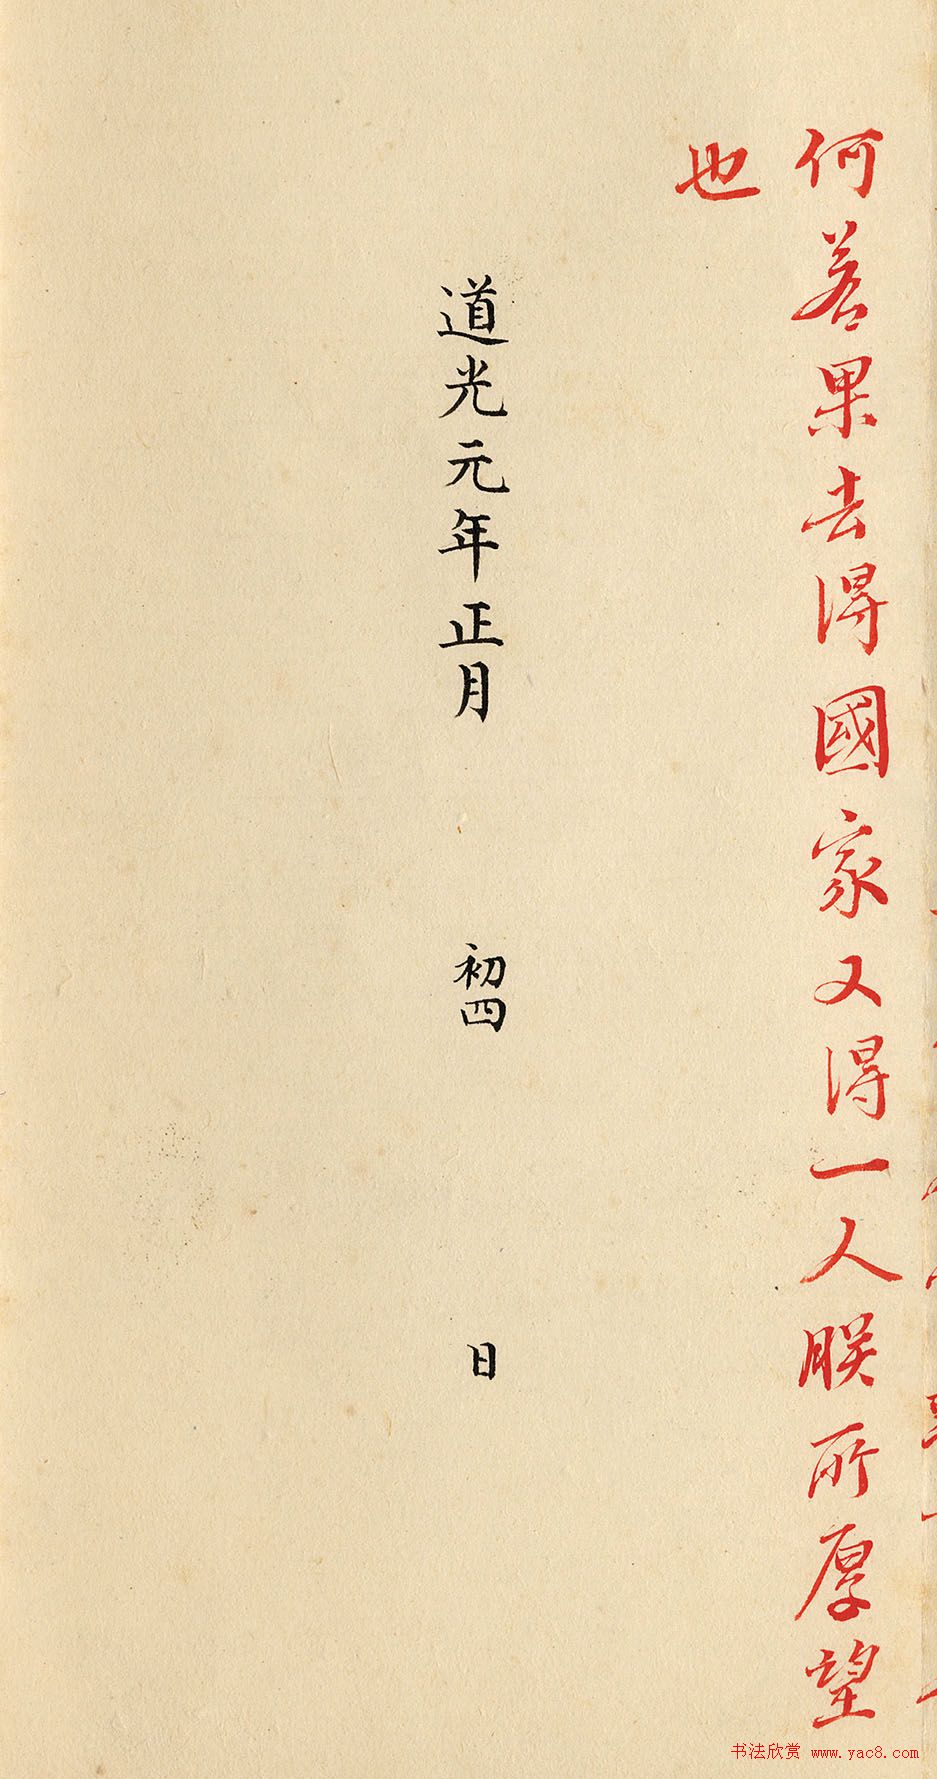 何若果去得國家又得一人朕所厚望
也
道光元年正月 初四 日
书法欣赏 www.yac8.com